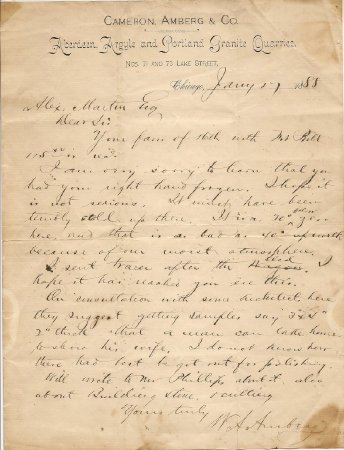 CAMERON, AMBERG & CO.
Aberdeen, Argyle and Portland Granite Quarries
Nos. 71 AND 73 LAKE STREET,
Chicago, Jany 1888
Alex. Martin Esq
Dear Sir
Your favor of 16th with
is
I am very sorry to learn that you
had your right hand frozen. I hope it
is not serious. It must have been
terribly cold up there. It is 20° below zero
here, and that is as bad as 40° up north
because of our moist atmosphere.
I sent tracer after the
hope it has reached you ere this.
On consultation with some Architect here
they suggest getting samples say
2" thick that a man can take home
to show his wife. I do not know how
there had best be got out for polishing.
Will write to Mr Phillips about it also
about Building Stone,
Yours truly
W. A. Amberg